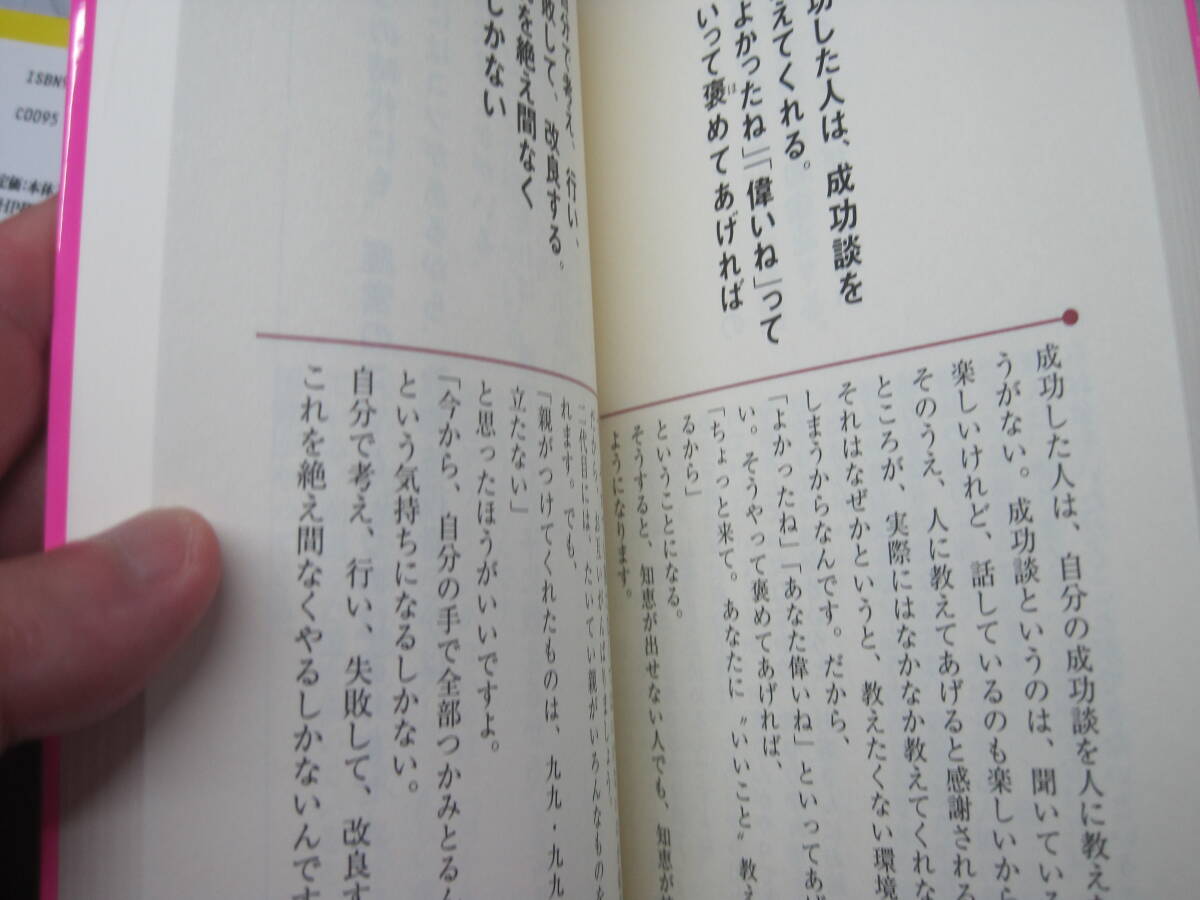 功した人は、成功談を
えてくれる。
よかったね」「偉いね」って
いって褒めてあげれば
ほ
成功した人は、自分の成功談を人に教え
うがない。成功談というのは、聞いている
楽しいけれど、話しているのも楽しいから
そのうえ、人に教えてあげると感謝される
ところが、実際にはなかなか教えてくれな
それはなぜかというと、教えたくない環境
しまうからなんです。だから、
「よかったね」「あなた偉いね」といってあげ
い。そうやって褒めてあげれば、
「ちょっと来て。あなたに〝いいこと〟教え
るから」
ということになる。
そうすると、知恵が出せない人でも、知恵が
ようになります。
自分で考え、行い、
敗して、改良する。
を絶え間なく
しかない
二代目には、たいてい親がいろんなものを
れます。でも、
「親がつけてくれたものは、九九・九九
立たない」
と思ったほうがいいですよ。
「今から、自分の手で全部つかみとるん
という気持ちになるしかない。
自分で考え、行い、失敗して、改良す
これを絶え間なくやるしかないんです
ISBN9
C0095
定価:本体